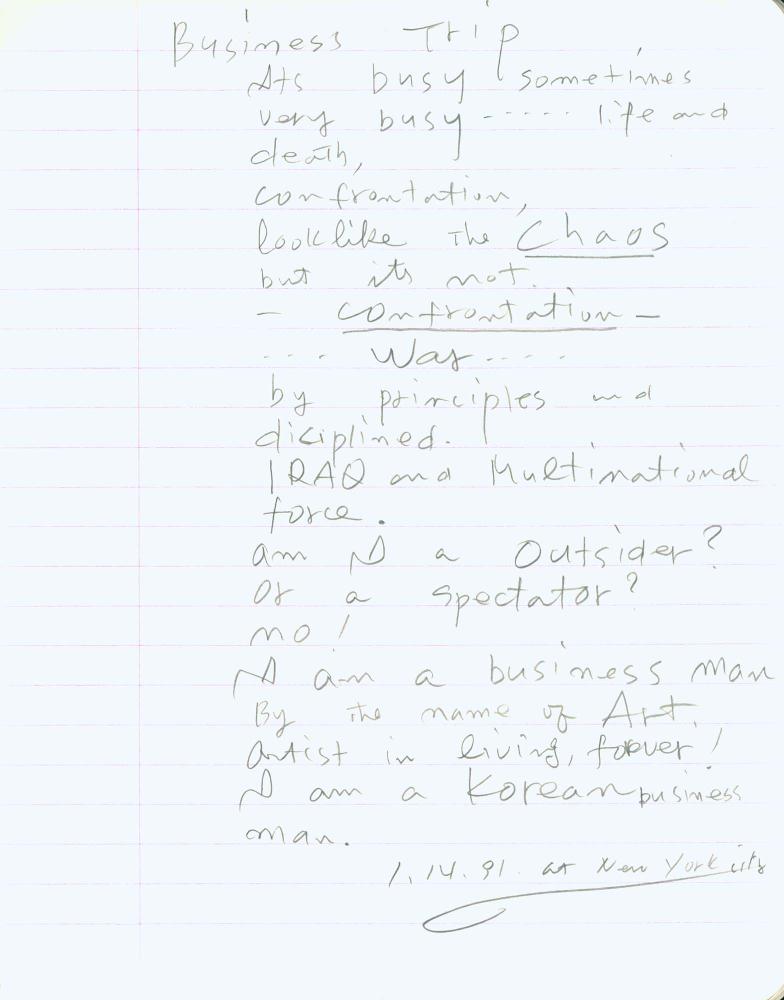 Business Trip
Its busy sometimes
very busy ------ life and
death,
confrontation,
looklike the Chaos
but its not.
- confrontation -
.... War ....
by principles and
diciplined.
IRAQ and Multinational
force.
am I a Outsider?
Or a spectator?
no!
I am a business man
By the name of Art.
Artist in living, forever!
I am a Korean business
man.
1.14.91. at New York city